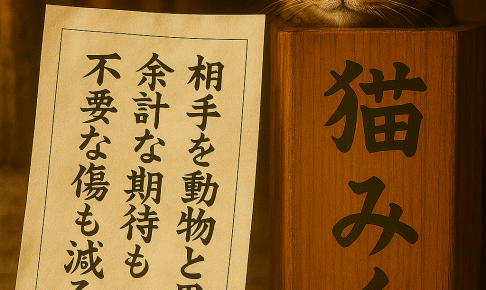 相手を動物と
余計な期待も
不要な傷も減
猫み